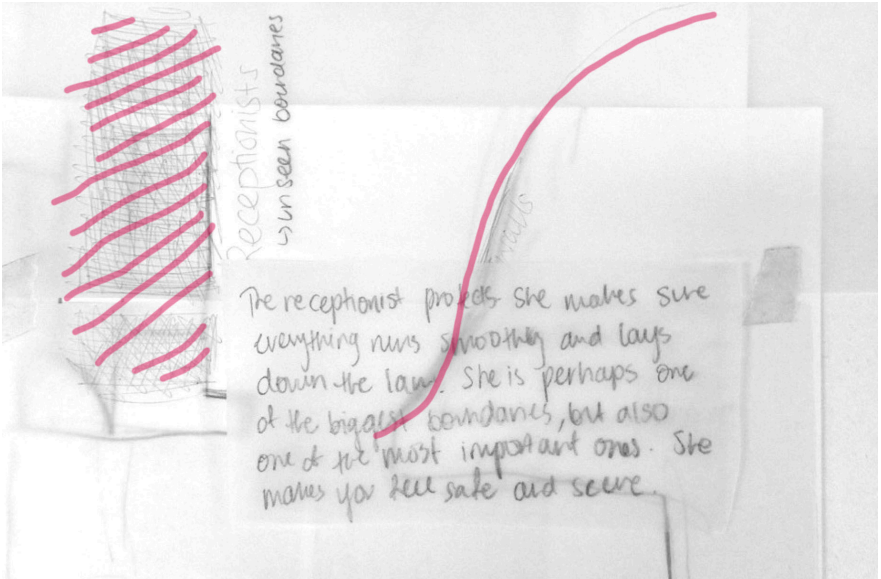 Receptionists
↳unseen boundaries
walls
The receptionist protects she makes sure
everything runs smoothly and lays
down the law. She is perhaps one
of the biggest boundaries, but also
one of the most important ones. She
makes you feel safe and secure.